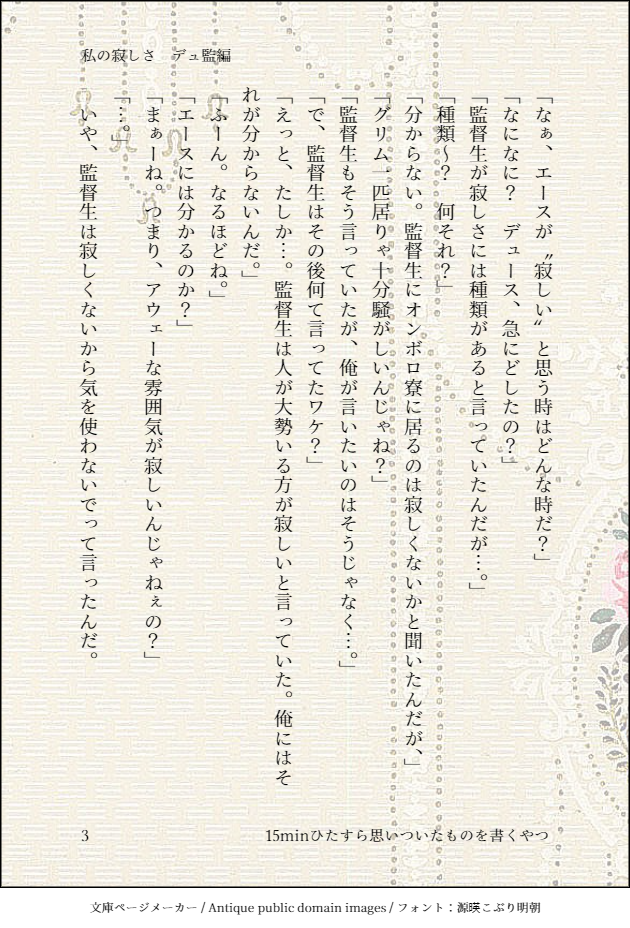 私の寂しさ　デュ監編
「なぁ、エースが〝寂しい〟と思う時はどんな時だ？」
「なになに？　デュース、急にどしたの？」
「監督生が寂しさには種類があると言っていたんだが…。」
「種類～？　何それ？」
「分からない。監督生にオンボロ寮に居るのは寂しくないかと聞いたんだが、」
「グリム一匹居りゃ十分騒がしいんじゃね？」
「監督生もそう言っていたが、俺が言いたいのはそうじゃなく…。」
「で、監督生はその後何て言ってたワケ？」
「えっと、たしか…。監督生は人が大勢いる方が寂しいと言っていた。俺にはそ
れが分からないんだ。」
「ふーん。なるほどね。」
「エースには分かるのか？」
「まぁーね。つまり、アウェーな雰囲気が寂しいんじゃねぇの？」
「…。」
いや、監督生は寂しくないから気を使わないでって言ったんだ。
15minひたすら思いついたものを書くやつ
3
文庫ページメーカー / Antique public domain images / フォント：源暎こぶり明朝